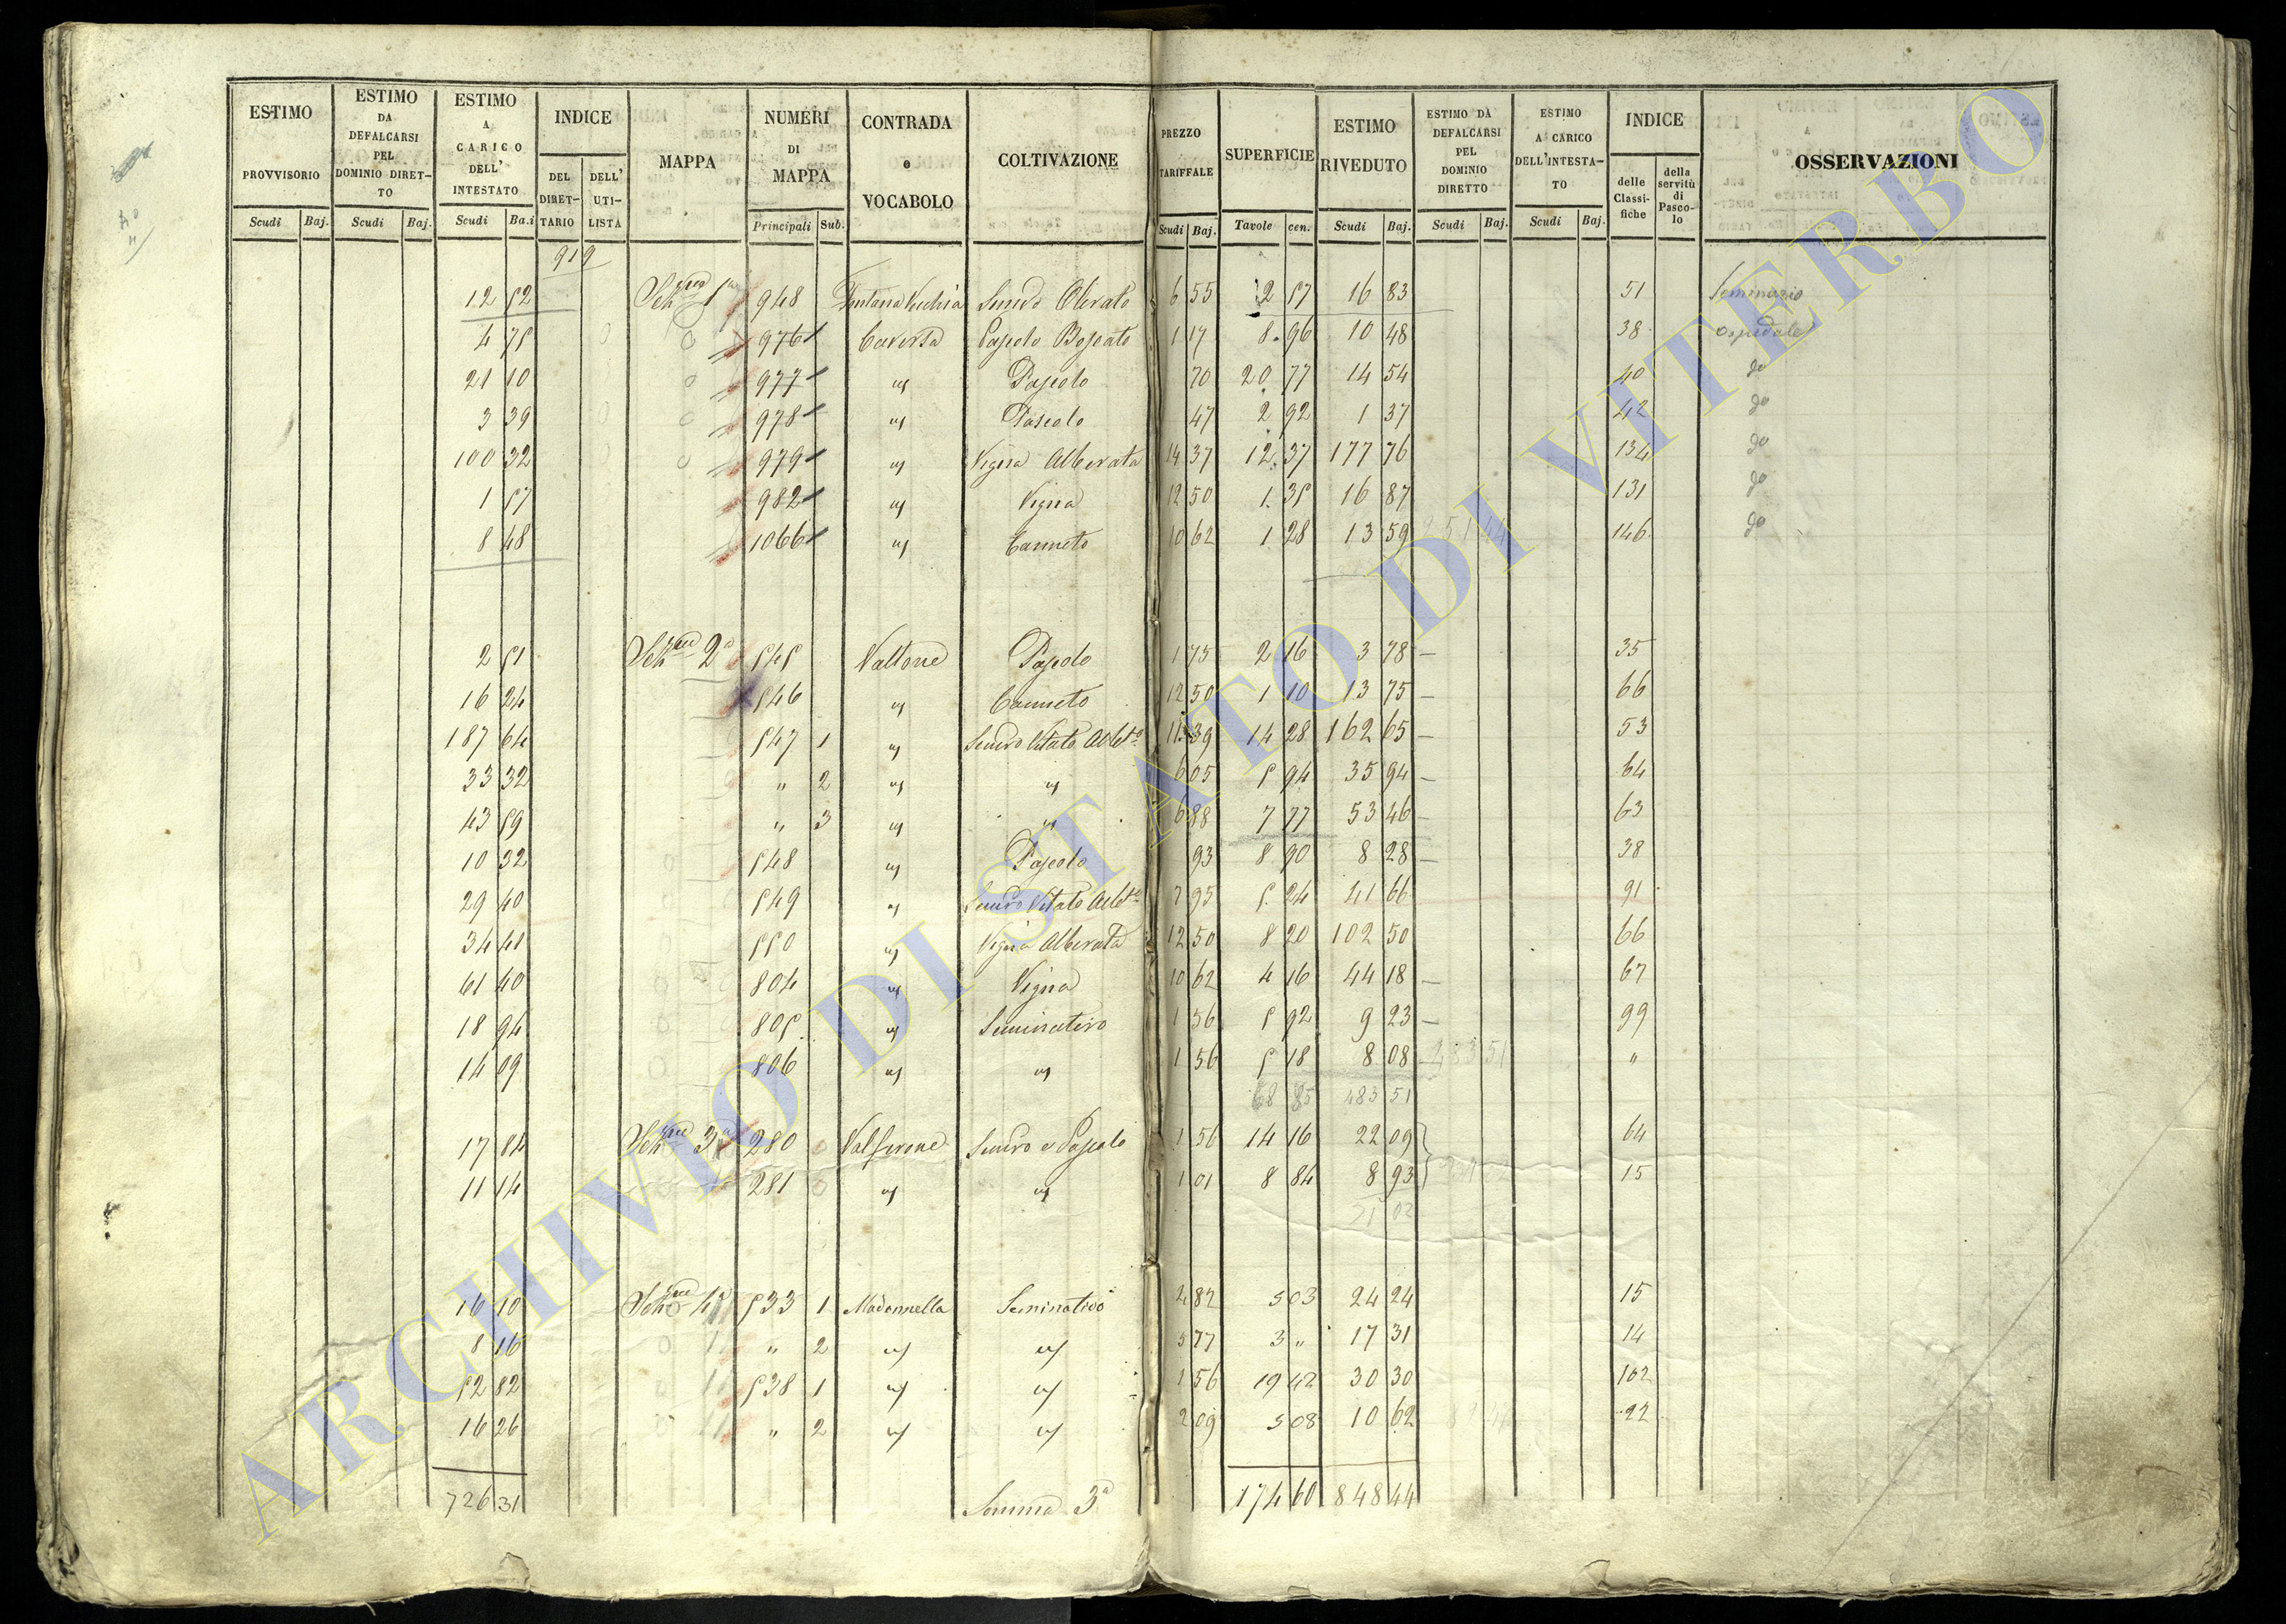 ESTIMO PROVVISORIO Scudi Baj.
ESTIMO DA DEFALCARSI PEL DOMINIO DIRETTO Scudi Baj.
ESTIMO A CARICO DELL' INTESTATO Scudi Ba.i
INDICE DEL DIRETTARIO DELL' UTILISTA
MAPPA
NUMERI DI MAPPA Principali Sub.
CONTRADA e VOCABOLO
COLTIVAZIONE
PREZZO TARIFFALE Scudi Baj.
SUPERFICIE Tavole cen.
ESTIMO RIVEDUTO Scudi Baj.
ESTIMO DA DEFALCARSI PEL DOMINIO DIRETTO Scudi Baj.
ESTIMO A CARICO DELL'INTESTATO Scudi Baj.
INDICE delle Classifiche della servitù di Pascolo
OSSERVAZIONI
919
12 52 948 Fontana Vecchia Olivato 6 55 2 57 16 83 51 Seminario
4 75 976 Caverta Pascolo Boscato 1 17 8 96 10 48 38 Ospedale
21 10 977 " Pascolo 70 20 77 14 54 40 do
3 39 978 " Pascolo 47 2 92 1 37 42 do
100 32 979 " Vigna Alberata 14 37 12 37 177 76 134 do
1 57 982 " Vigna 12 50 1 35 16 87 131 do
8 48 1066 " Canneto 10 62 1 28 13 59 251 44 146 do
2 51 2a 545 Vallone Pascolo 1 75 2 16 3 78 35
16 24 546 " Canneto 12 50 1 10 13 75 66
187 64 547 1 " Vitato 11 39 14 28 162 65 53
33 32 " 2 " " 6 05 5 94 35 94 64
43 59 " 3 " " 6 88 7 77 53 46 63
10 32 548 " Pascolo 93 8 90 8 28 38
29 40 549 " Vitato 7 95 5 24 41 66 91
34 40 550 " Vigna Alberata 12 50 8 20 102 50 66
61 40 804 " Vigna 10 62 4 16 44 18 67
18 94 805 " Seminativo 1 56 5 92 9 23 99
14 09 806 " " 1 56 5 18 8 08 483 51 "
68 85 483 51
17 84 3a 280 Pascolo 1 56 14 16 22 09 64
11 14 281 " " 1 01 8 84 8 93 15
31 02
16 10 4a 533 1 Madonnella Seminativo 4 82 5 03 24 24 15
8 16 " 2 " " 5 77 3 " 17 31 14
52 82 538 1 " " 1 56 19 42 30 30 102
16 26 " 2 " " 2 09 5 08 10 62 22
726 31 Somma 3a 174 60 848 44
ARCHIVIO DI STATO DI VITERBO